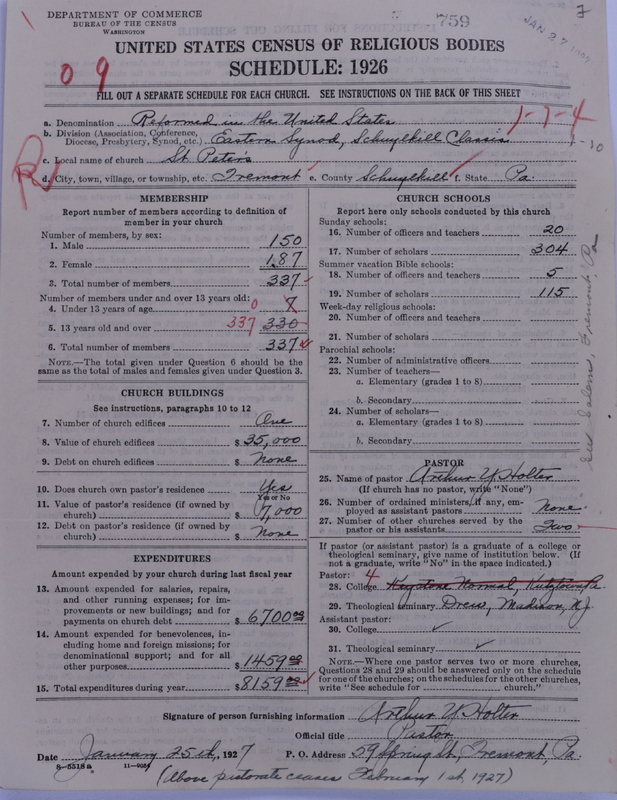 DEPARTMENT OF COMMERCE
BUREAU OF THE CENSUS
WASHINGTON
759
JAN 27 1927
UNITED STATES CENSUS OF RELIGIOUS BODIES
SCHEDULE: 1926
09
FILL OUT A SEPARATE SCHEDULE FOR EACH CHURCH. SEE INSTRUCTIONS ON THE BACK OF THIS SHEET
a. Denomination Reformed in the United States
1-7-4
b. Division (Association, Conference,
Diocese, Presbytery, Synod, etc.) Eastern Synod, Schuylkill Classis
c. Local name of church St Peters
d. City, town, village, or township, etc. Tremont e. County Schuylkill f. State Pa.
MEMBERSHIP
Report number of members according to definition of
member in your church
Number of members, by sex:
1. Male 150
2. Female 187
3. Total number of members 337
Number of members under and over 13 years old:
4. Under 13 years of age 0 7
5. 13 years old and over 337 330
6. Total number of members 337
NOTE.—The total given under Question 6 should be the
same as the total of males and females given under Question 3.
CHURCH BUILDINGS
See instructions, paragraphs 10 to 12
7. Number of church edifices One
8. Value of church edifices $ 35,000
9. Debt on church edifices $ None
10. Does church own pastor's residence Yes
Yes or No
11. Value of pastor's residence (if owned by
church) $ 7,000
12. Debt on pastor's residence (if owned by
church) $ None
EXPENDITURES
Amount expended by church during last fiscal year
13. Amount expended for salaries, repairs,
and other running expenses; for im-
provements or new buildings; and for
payments on church debt $ 6700 00
14. Amount expended for benevolences, in-
cluding home and foreign missions; for
denominational support; and for all
other purposes $ 1459 00
15. Total expenditures during year $ 8159 00
CHURCH SCHOOLS
Report here only schools conducted by this church
Sunday schools:
16. Number of officers and teachers 20
17. Number of scholars 304
Summer vacation Bible schools:
18. Number of officers and teachers 5
19. Number of scholars 115
Week-day religious schools:
20. Number of officers and teachers
21. Number of scholars
Parochial schools:
22. Number of administrative officers
23. Number of teachers—
a. Elementary (grades 1 to 8)
b. Secondary
24. Number of scholars—
a. Elementary (grades 1 to 8)
b. Secondary
PASTOR
25. Name of pastor Arthur Y. Holter
(If church has no pastor, write "None")
26. Number of ordained ministers, if any, em-
ployed as assistant pastors None
27. Number of other churches served by the
pastor or his assistants Two
If pastor (or assistant pastor) is a graduate of a college or
theological seminary, give name of institution below. (If
not a graduate, write "No" in the space indicated.)
Pastor: 4
28. College Keystone Normal, Kutztown Pa.
29. Theological seminary Drew, Madison, N.J.
Assistant pastor:
30. College
31. Theological seminary
NOTE.—Where one pastor serves two or more churches,
Questions 28 and 29 should be answered only on the schedule
for one of the churches; on the schedules for the other churches,
write "See schedule for church."
See Salem, Tremont, Pa
Signature of person furnishing information Arthur Y. Holter
Official title Pastor
Date January 25th, 1927 P. O. Address 59 Spring St, Tremont, Pa.
8-5318a 11-9054
(Above pastorate ceases February 1st, 1927)